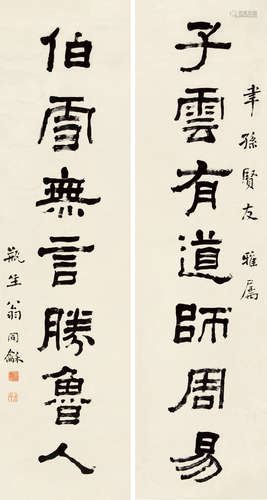 韋孫賢友雅属
子雲有道師周易
伯雪無言勝魯人
瓶生翁同龢